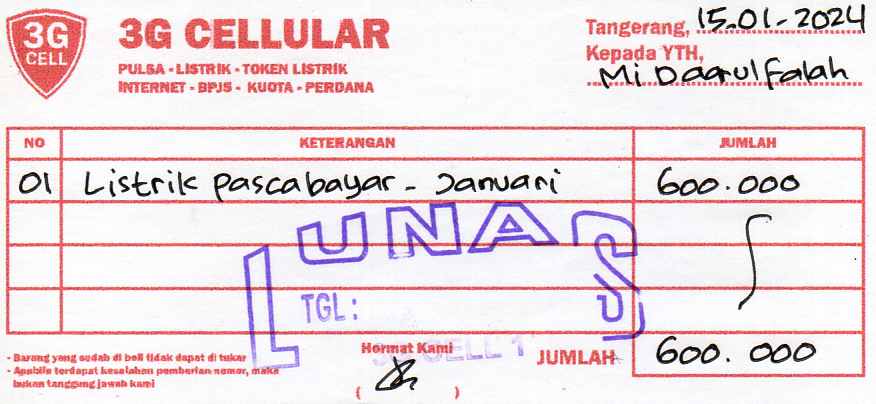 3G
CELL
3G CELLULAR
PULSA - LISTRIK - TOKEN LISTRIK
INTERNET - BPJS - KUOTA - PERDANA
Tangerang, 15.01-2024
Kepada YTH,
Mi Daarul Falah
NO KETERANGAN JUMLAH
01 Listrik Pascabayar - Januari 600.000
LUNAS
TGL:
CELL 1
- Barang yang sudah di beli tidak dapat di tukar
- Apabila terdapat kesalahan pemberian nomor, maka
bukan tanggung jawab kami
Hormat Kami
( )
JUMLAH 600.000